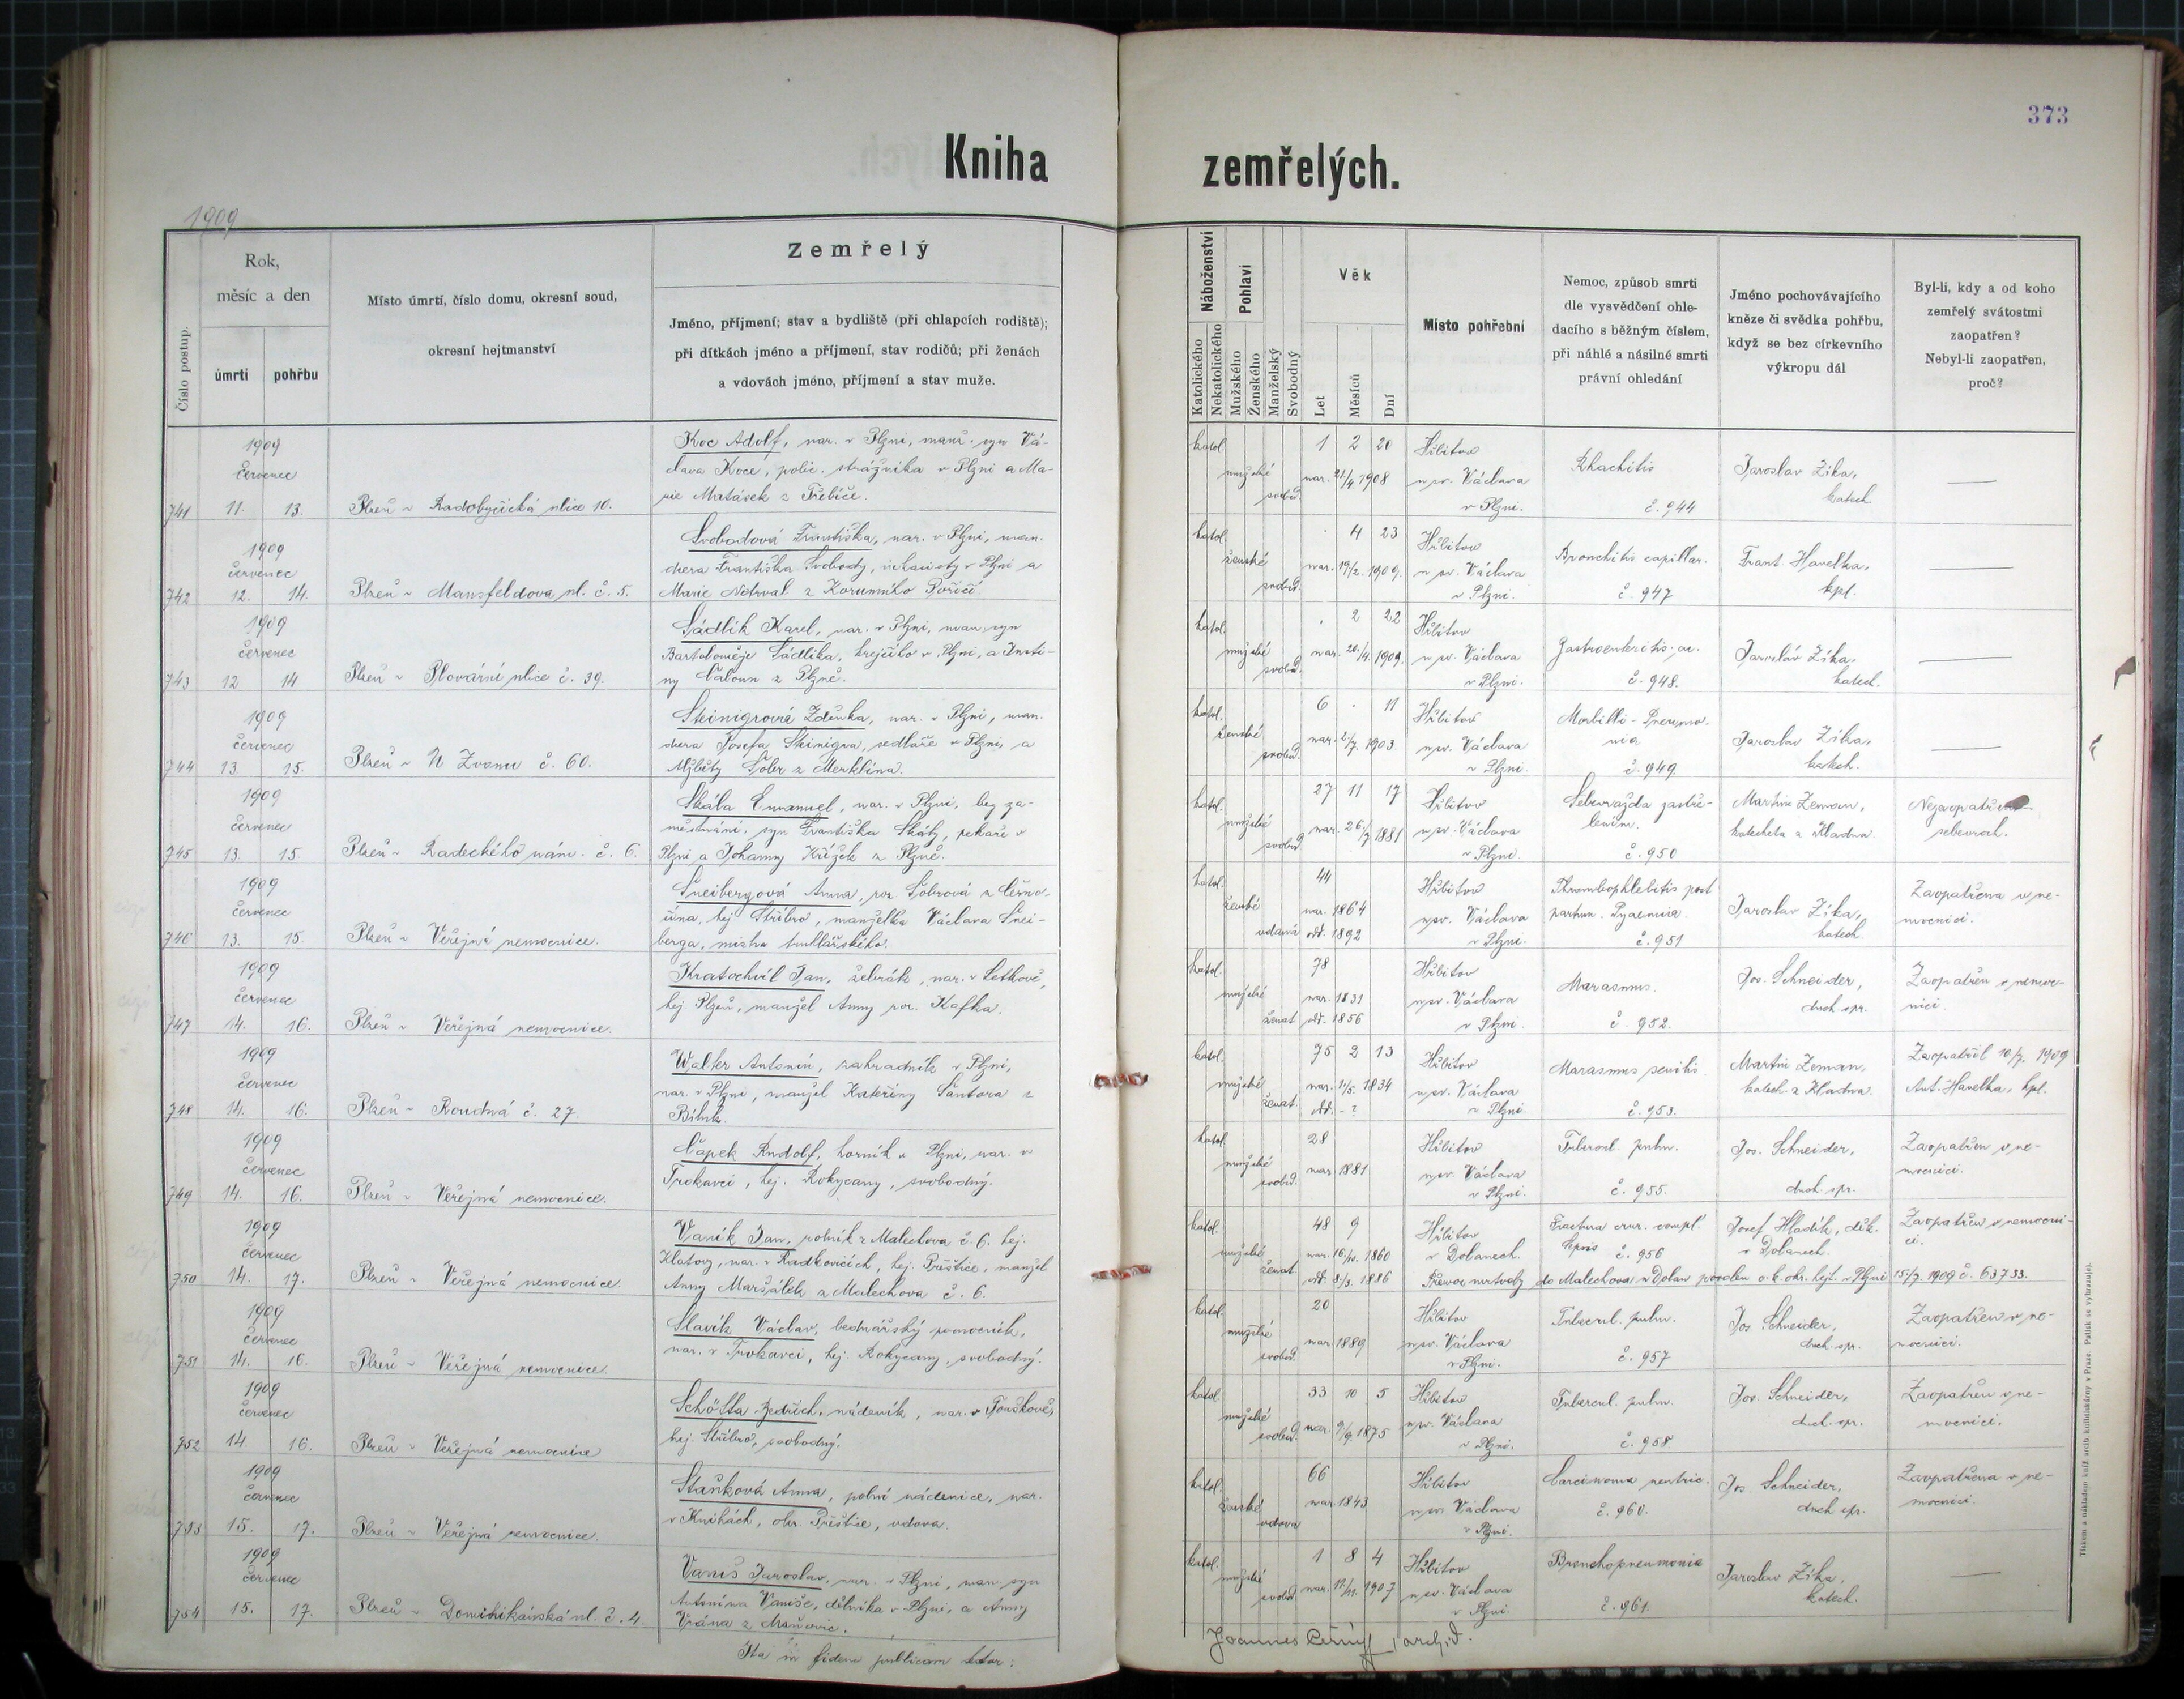 373
Kniha zemřelých.
1909
Číslo postup.
Rok,
měsíc a den
úmrtí
pohřbu
Místo úmrtí, číslo domu, okresní soud,
okresní hejtmanství
Zemřelý
Jméno, příjmení; stav a bydliště (při chlapcích rodiště);
při dítkách jméno a příjmení, stav rodičů; při ženách
a vdovách jméno, příjmení a stav muže.
Náboženství
Katolického
Nekatolického
Pohlaví
Mužského
Ženského
Manželský
Svobodný
Věk
Let
Měsíců
Dní
Místo pohřební
Nemoc, způsob smrti
dle vysvědčení ohle-
dacího s běžným číslem,
při náhlé a násilné smrti
právní ohledání
Jméno pochovávajícího
kněze či svědka pohřbu,
když se bez církevního
výkropu dál
Byl-li, kdy a od koho
zemřelý svátostmi
zaopatřen?
Nebyl-li zaopatřen,
proč?
1909
červenec
741 11. 13. Plzeň ~ Radobyčická ulice 10.
Koc Adolf, nar. v Plzni, manž. syn Vá-
clava Koce, polic. strážníka v Plzni a Ma-
rie Matásek z Třebíče.
katol. mužské svobod.
1 2 20
nar. 21/4. 1908
Hřbitov
u sv. Václava
v Plzni.
Rhachitis
č. 944
Jaroslav Zíka,
katech.
1909
červenec
742 12. 14. Plzeň ~ Mansfeldova ul. č. 5.
Svobodová Františka, nar. v Plzni, man.
dcera Františka Svobody, v Plzni a
Marie z Korunního Poříčí.
katol. ženské svobod.
4 23
nar. 19/2. 1909.
Hřbitov
u sv. Václava
v Plzni.
Bronchitis capillar.
č. 947
Frant. Havelka,
kpl.
1909
červenec
743 12 14 Plzeň ~ Plovární ulice č. 39.
Sádlík Karel, nar. v Plzni, man. syn
Bartoloměje Sádlíka, krejčího v Plzni, a Justi-
ny Caloun z Plzně.
katol. mužské svobod.
2 22
nar. 20/4. 1909.
Hřbitov
u sv. Václava
v Plzni.
Gastroenteritis. ac.
č. 948.
Jaroslav Zíka,
katech.
1909
červenec
744 13. 15. Plzeň ~ U Zvonu č. 60.
Steinigrová Zdeňka, nar. v Plzni, man.
dcera Josefa Steinigra, sedláře v Plzni, a
Alžběty Šobr z Merklína.
katol. ženské svobod.
6 . 11
nar. 2/7. 1903
Hřbitov
u sv. Václava
v Plzni.
Morbilli - Pneumo-
nia
č. 949.
Jaroslav Zíka,
katech.
1909
červenec
745 13. 15. Plzeň ~ Radeckého nám. č. 6.
Skála Emanuel, nar. v Plzni, bez za-
městnání, syn Františka Skály, pekaře v
Plzni a Johanny Křížek z Plzně.
katol. mužské svobod.
27 11 17
nar. 26/7 1881
Hřbitov
u sv. Václava
v Plzni.
Sebevražda zastře-
lením.
č. 950
Martin Zeman,
katecheta z Kladna.
sebevrah.
1909
červenec
746 13. 15. Plzeň ~ Veřejná nemocnice.
Šneibergová Anna, roz. Šobrová z Černo-
šína, hej. Stříbro, manželka Václava Šnei-
berga, mistra truhlářského.
katol. ženské vdaná
44
nar. 1864
odd. 1892
Hřbitov
u sv. Václava
v Plzni.
Thrombophlebitis post
partum. Pyaemia.
č. 951
Jaroslav Zíka,
katech.
Zaopatřena v ne-
mocnici.
1909
červenec
747 14. 16. Plzeň ~ Veřejná nemocnice.
Kratochvil Jan, žebrák, nar. v Letkově,
hej. Plzeň, manžel Anny roz. Kafka.
katol. mužské ženat
78
nar. 1831
odd. 1856
Hřbitov
u sv. Václava
v Plzni.
Marasmus.
č. 952.
Jos. Schneider,
duch. spr.
Zaopatřen v nemoc-
nici.
1909
červenec
748 14. 16. Plzeň ~ Roudná č. 27.
Walter Antonín, zahradník v Plzni,
nar. v Plzni, manžel Kateřiny Šantora z
katol. mužské ženat.
75 2 13
nar. 1/5. 1834
odd. - ?
Hřbitov
u sv. Václava
v Plzni.
Marasmus senilis.
č. 953.
Martin Zeman,
katech. z Kladna.
Zaopatřil 10/7. 1909
Ant. Havelka, kpl.
1909
červenec
749 14. 16. Plzeň ~ Veřejná nemocnice.
Čapek Rudolf, horník v Plzni, nar. v
Trokavci, hej. Rokycany, svobodný.
katol. mužské svobod.
28
nar. 1881
Hřbitov
u sv. Václava
v Plzni.
Tubercul. pulm.
č. 955.
Jos. Schneider,
duch. spr.
Zaopatřen v ne-
mocnici.
1909
červenec
750 14. 17. Plzeň ~ Veřejná nemocnice.
Vaník Jan, rolník z Malechova č. 6. hej.
Klatovy, nar. v Radkovicích, hej. Přeštice, manžel
Anny Maršálek z Malechova č. 6.
katol. mužské ženat.
48 9
nar. 16/10. 1860
odd. 8/3. 1886
Hřbitov
v Dolanech.
Fractura crur. compl.
Sepsis č. 956
Josef Hladík, děk.
v Dolanech.
Zaopatřen v nemocni-
ci.
Převoz mrtvoly do Malechova a Dolan povolen c. k. okr. hejt. v Plzni 15/7. 1909 č. 63733.
1909
červenec
751 14. 16. Plzeň ~ Veřejná nemocnice.
Slavík Václav, bednářský pomocník,
nar. v Trokavci, hej. Rokycany, svobodný.
katol. mužské svobod.
20
nar. 1889
Hřbitov
u sv. Václava
v Plzni.
Tubercul. pulm.
č. 957
Jos. Schneider,
duch. spr.
Zaopatřen v ne-
mocnici.
1909
červenec
752 14. 16. Plzeň ~ Veřejná nemocnice
Bedřich, nádeník, nar. v Touškově,
hej. Stříbro, svobodný.
katol. mužské svobod.
33 10 5
nar. 9/9. 1875
Hřbitov
u sv. Václava
v Plzni.
Tubercul. pulm.
č. 958
Jos. Schneider,
duch. spr.
Zaopatřen v ne-
mocnici.
1909
červenec
753 15. 17. Plzeň ~ Veřejná nemocnice.
Staňková Anna, polní nádenice, nar.
v Knihách, okr. Přeštice, vdova.
katol. ženské vdova
66
nar. 1843
Hřbitov
u sv. Václava
v Plzni.
Carcinoma ventric.
č. 960.
Jos. Schneider,
duch. spr.
Zaopatřena v ne-
mocnici.
1909
červenec
754 15. 17. Plzeň ~ Dominikánská ul. č. 4.
Vaniš Jaroslav, nar. v Plzni, man. syn
Antonína Vaniše, dělníka v Plzni, a Anny
Vrána z
katol. mužské svobod.
1 8 4
nar. 11/11. 1907
Hřbitov
u sv. Václava
v Plzni.
Bronchopneumonia
č. 961.
Jaroslav Zíka,
katech.
Ita in fidem publicam testor:
Joannes archid.
Tiskem a nákladem kníž. arcib. knihtiskárny v Praze. Patisk se vyhrazuje).